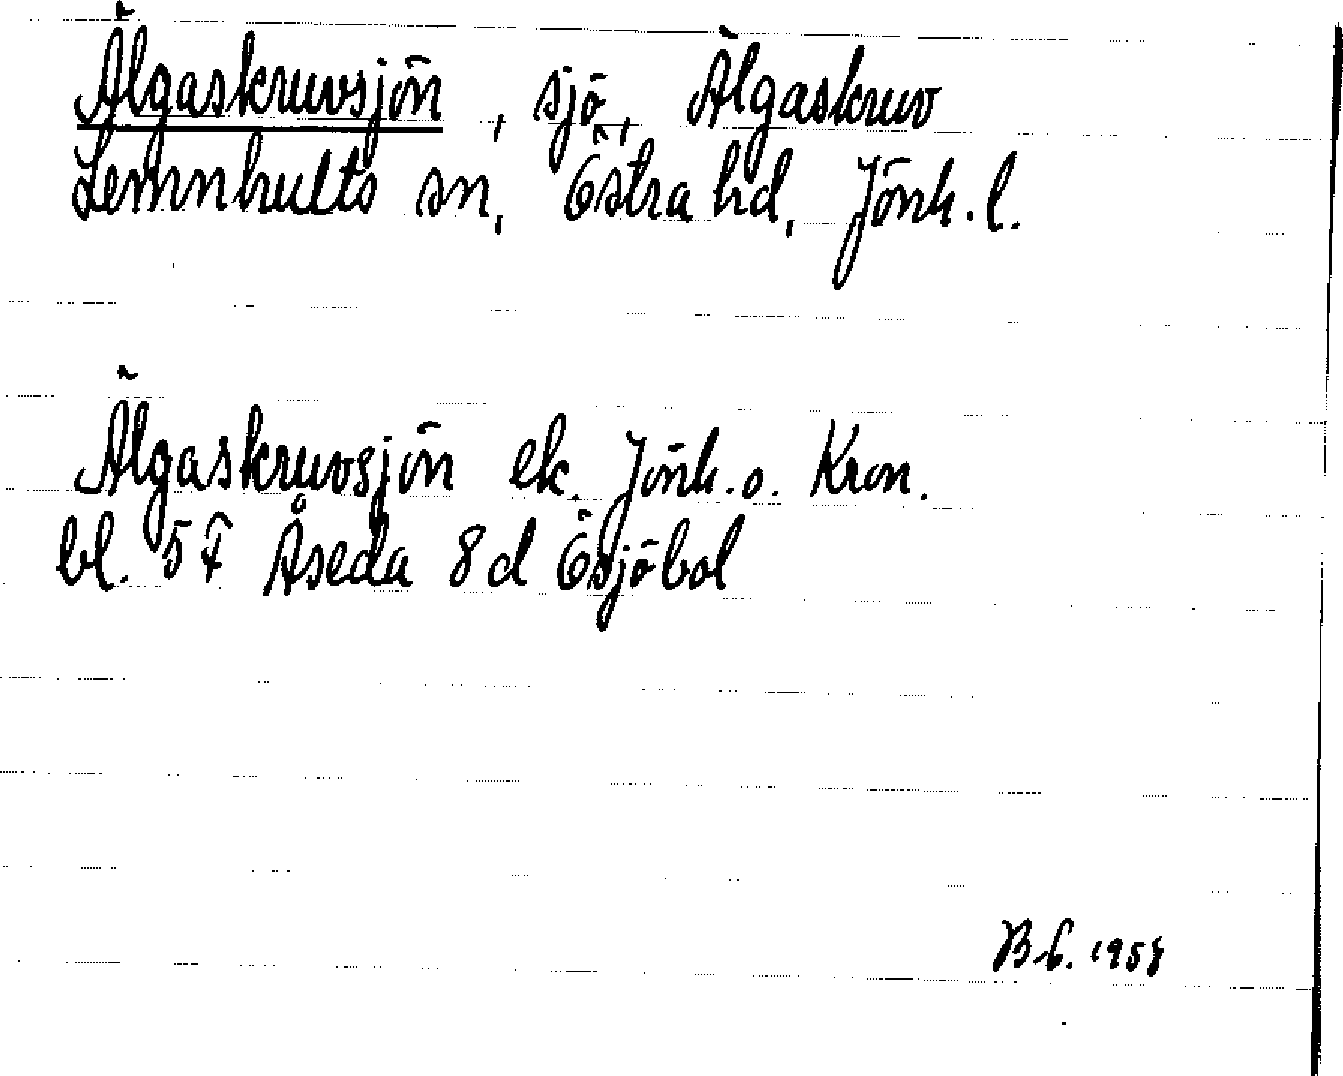 Älgaskruvsjön, sjö, Älgaskruv
Lemnhults sn, Östra hd, Jönk. l.
Älgaskruvsjön ek. Jönk. o. Kron.
bl. 5F Åseda 8d Ösjöbol
1958